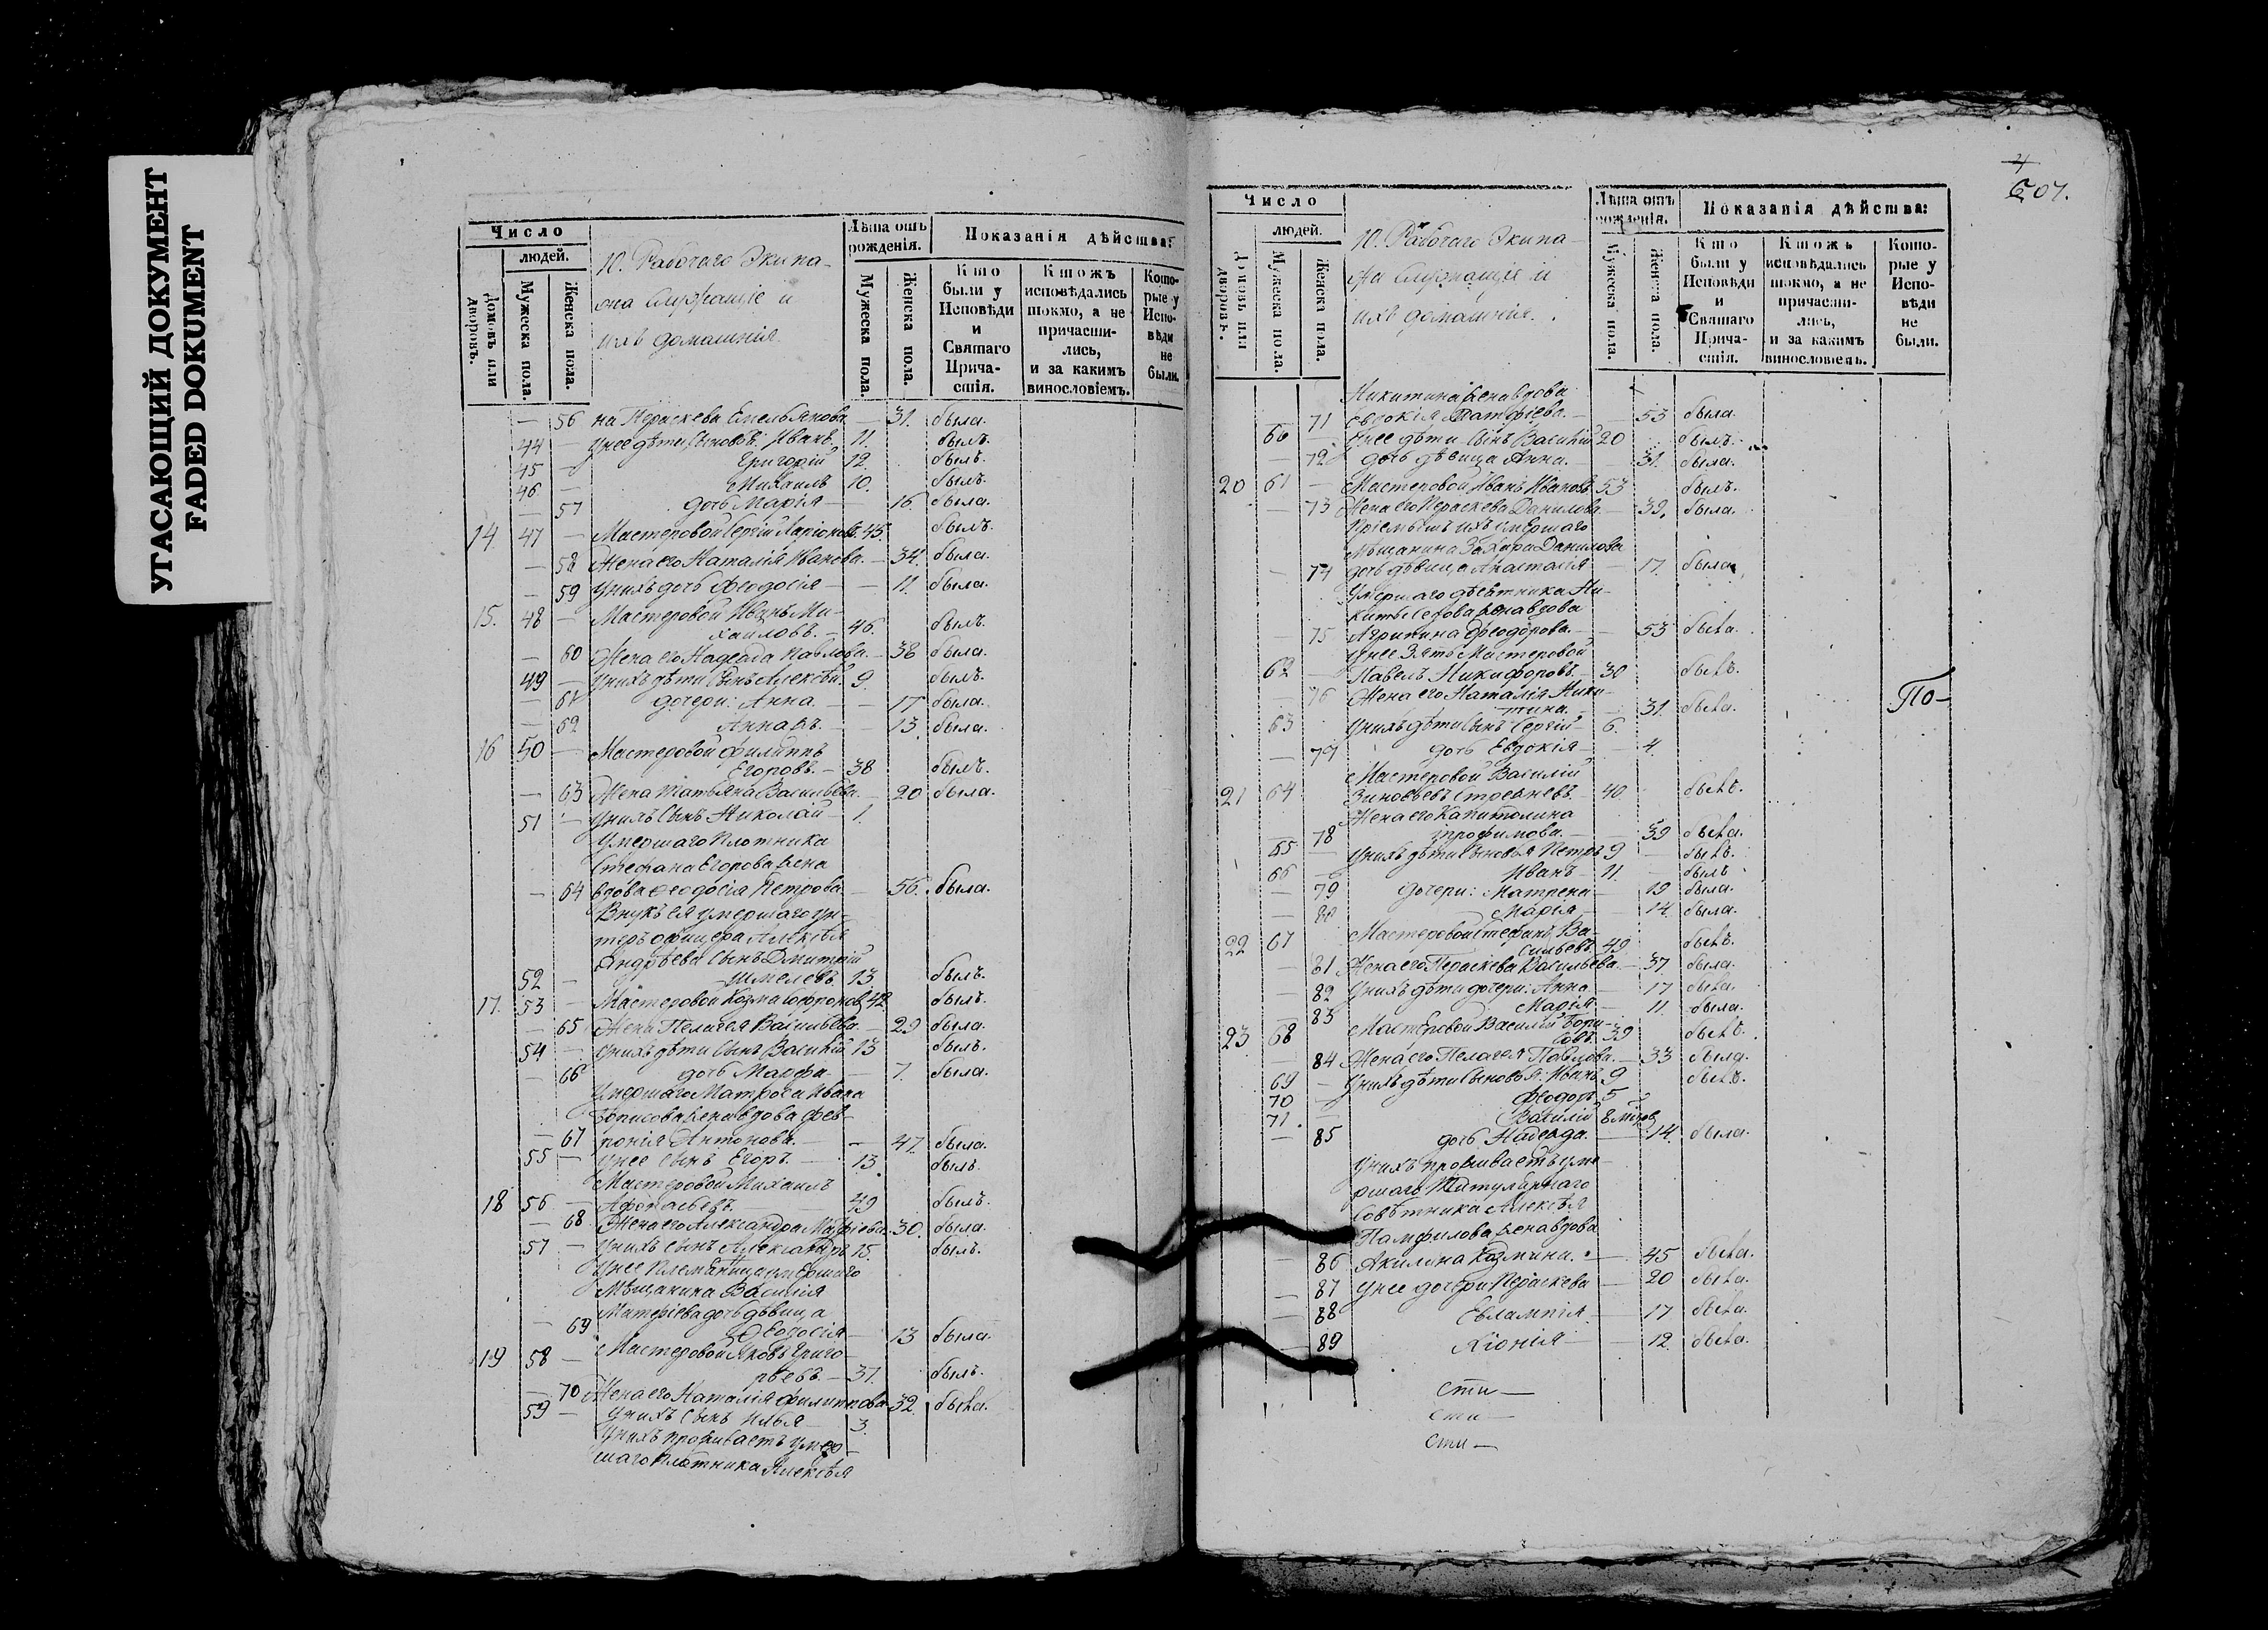 УТАСАЮЩИЙ ДОКУМЕНТ
FADED DOKUMENT
Число
людей.
Домовъ или дворовъ.
Мужеска пола.
Женска пола.
10. Рабочаго Экипа-
жа Служащіе и
ихъ домашнія.
Лѣта отъ рожденія.
Мужеска пола.
Женска пола.
Показанія дѣйства:
Кто были у Исповѣди и Святаго Причастія.
Ктожъ исповѣдались токмо, а не причастились, и за какимъ винословіемъ.
Которые у Исповѣди не были.
— 56 на Параскева Емельянова — 31. была.
44 — У нее дѣти сыновья: Иванъ. 11. былъ.
45 — Григорій 12. былъ.
46 — Михаилъ 10. былъ.
— 57 дочь Марія — 16. была.
14. 47 — Мастеровой Сергій Ларіоновъ. 45. былъ.
— 58 Жена его Наталія Иванова. — 34. была.
— 59 У нихъ дочь Феодосія — — 11. была.
15. 48 — Мастеровой Иванъ Ми-
хаиловъ. — 46. былъ.
— 60 Жена его Надежда Павлова. — 38 была.
49 — У нихъ дѣти сынъ Алексѣй. 9. былъ.
— 61 дочери: Анна. — — 17 была.
— 62 — 13. была.
16 50 — Мастеровой Филиппъ
Егоровъ. — 38 былъ.
— 63 Жена Татьяна Васильева. — 20 была.
51 — У нихъ сынъ Николай — 1.
Умершаго Плотника
Стефана Егорова жена
— 64 вдова Феодосія Петрова — 56. была.
Внукъ ея умершаго ун-
теръ офицера Алексѣя
Андрѣева сынъ Дмитрій
52 — Шмелевъ. 13 былъ.
17. 53 — Мастеровой Козма Софроновъ 42. былъ.
— 65 Жена Пелагея Васильева. — 29 была.
54 — У нихъ дѣти сынъ Василій 13 былъ.
— 66 дочь Марфа — 7. была.
Умершаго Матроса Ивана
Борисова жена вдова Фев-
— 67 ронія Антонова. — — 47. была.
55 — У нее сынъ Егоръ. — 13. былъ.
Мастеровой Михаилъ
18 56 — Афонасьевъ. 49 былъ.
— 68 Жена его Александра Матфіева. 30. была.
57 — У нихъ сынъ Александръ 15. былъ.
У нее племянница умершаго
Мѣщанина Василія
Матфіева дочь дѣвица
— 69 Феодосія — 13 была.
19 58 — Мастеровой Яковъ Григо-
рьевъ. — 37. былъ.
— 70 Жена его Наталія Филиппова 32. была.
59 — У нихъ сынъ Илья — 3.
У нихъ проживаетъ умер-
шаго плотника Алексѣя
607.
Число
людей.
Домовъ или дворовъ.
Мужеска пола.
Женска пола.
10. Рабочаго Экипа-
жа Служащіе и
ихъ домашнія.
Лѣта отъ рожденія.
Мужеска пола.
Женска пола.
Показанія дѣйства:
Кто были у Исповѣди и Святаго Причастія.
Ктожъ исповѣдались токмо, а не причастились, и за какимъ винословіемъ.
Которые у Исповѣди не были.
Никитина жена вдова
71 Евдокія Матфіева. — 53 была.
60 — У нее дѣти сынъ Василій 20 былъ.
— 72 дочь дѣвица Анна. — 31. была.
20 61 — Мастеровой Иванъ Ивановъ 53 былъ.
— 73 Жена его Параскева Данилова. — 39. была.
Пріемышъ ихъ умершаго
Мѣщанина Захара Данилова
— 74 дочь дѣвица Анастасія — 17. была.
Умершаго Ни-
киты вдова
— 75 Агрипина Феодорова. — 53 была.
У нее зять Мастеровой
62 — Павелъ Никифоровъ. — 30 былъ.
— 76 Жена его Наталія Ники-
тина. — 31. была.
63 У нихъ дѣти сынъ Сергій — 6.
— 77 дочь Евдокія — 4.
Мастеровой Василій
21 64 Зиновьевъ — 40. былъ.
Жена его Капитолина
— 78 Трофимова. — 39 была.
65 — У нихъ дѣти сыновья Петръ 9 — былъ.
66 — Иванъ — 11. — былъ
— 79 дочери: Матрена — 19 была.
— 80 Марія — 14. была.
22 67 Мастеровой Стефанъ Ва-
сильевъ. 49 былъ.
— 81 Жена его Параскева Васильева. — 37. была.
— 82 У нихъ дѣти дочери: Анна — 17 была.
— 83 Марія. — 11. была.
23 68 Мастеровой Василій Бори-
совъ. 39 былъ.
— 84 Жена его Пелагея Павлова. — 33 была.
69 — У нихъ дѣти сыновья: Иванъ 9 былъ.
70 — Феодоръ 5
71. — Василій 8 мѣсяц.
— 85 дочь Надежда. — 14. была.
У нихъ проживаетъ уме-
ршаго Титулярнаго
Совѣтника Алексѣя
Памфилова жена вдова
— 86 Акилина Козмина. — 45 была.
— 87 У нее дочери Параскева — 20 была.
— 88 Евлампія. — 17 была.
— 89 Хіонія — 12. была.
По-
сти —
сти —
сти —